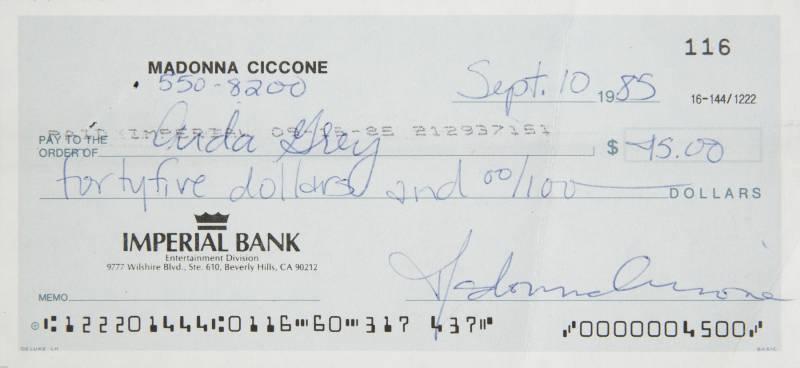 116
MADONNA CICCONE
550-8200
Sept. 10 1985
16-144/1222
PAID IMPERIAL 09-15-85 212937151
PAY TO THE
ORDER OF Aida Grey $ 45.00
fortyfive dollars and 00/100 DOLLARS
IMPERIAL BANK
Entertainment Division
9777 Wilshire Blvd., Ste. 610, Beverly Hills, CA 90212
Madonna Ciccone
MEMO
⑆122201444⑆0116⑈60⑈317 437⑈ ⑇0000004500⑇
DELUXE LH BASIC